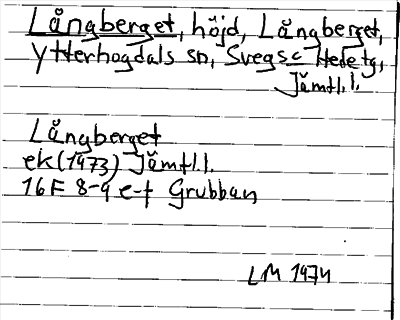 Långberget, höjd, Långberget,
Ytterhogdals sn, Svegs
Jämtl.l.
Långberget
ek (1973) Jämtl.l.
16F 8-9 e-f Grubban
LM 1974